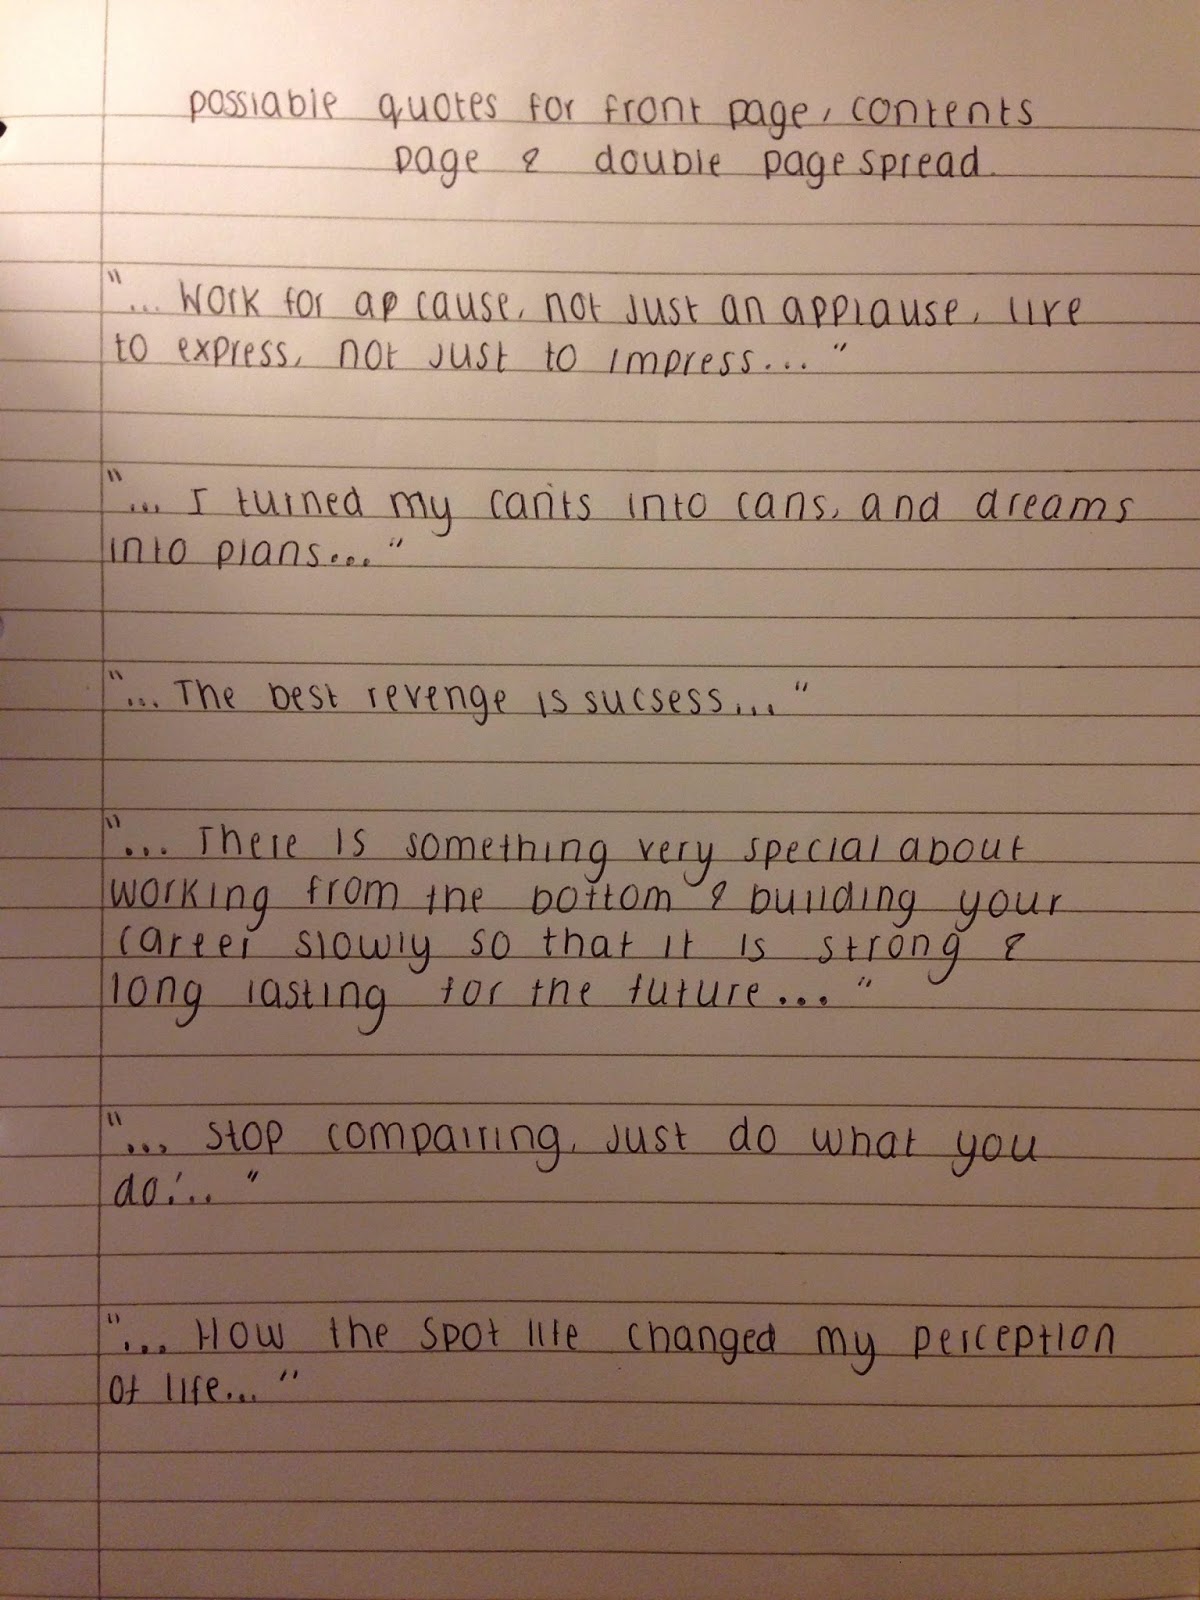 possiable quotes for front page, contents
page & double page spread.
"... Work for a cause, not just an applause, live
to express, not just to impress..."
"... I turned my can'ts into cans, and dreams
into plans..."
"... The best revenge is sucsess..."
"... There is something very special about
working from the bottom & building your
career slowly so that it is strong &
long lasting for the future..."
"... stop compairing, just do what you
do..."
"... How the spot lite changed my perception
of life..."